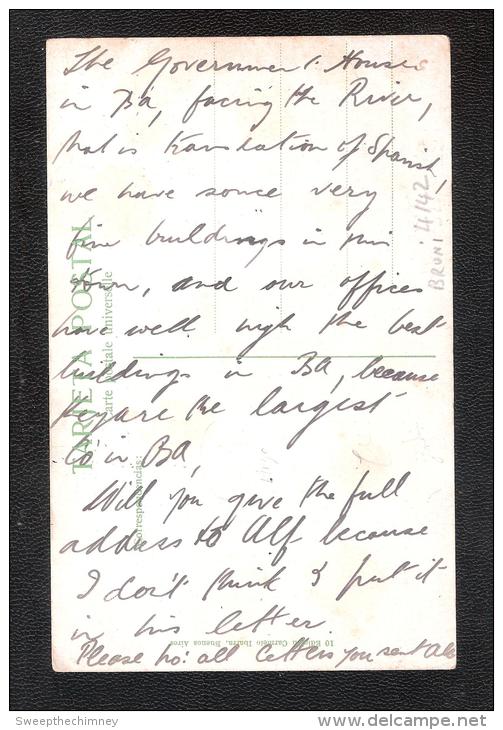 The Government Houses
in BA, facing the River,
that is translation of Spanish,
we have some very
fine buildings in this
town, and our offices
have well nigh the best
buildings in BA, because
they are the largest
Co in BA,
Will you give the full
address to Alf because
I don't think I put it
in his letter.
Please no: all letters you sent Alf
TARJETA POSTAL
Carte Postale Universelle
Correspondencias:
10 Edición Carmelo Ibarra, Buenos Aires
BRUNI 4142
Sweepthechimney